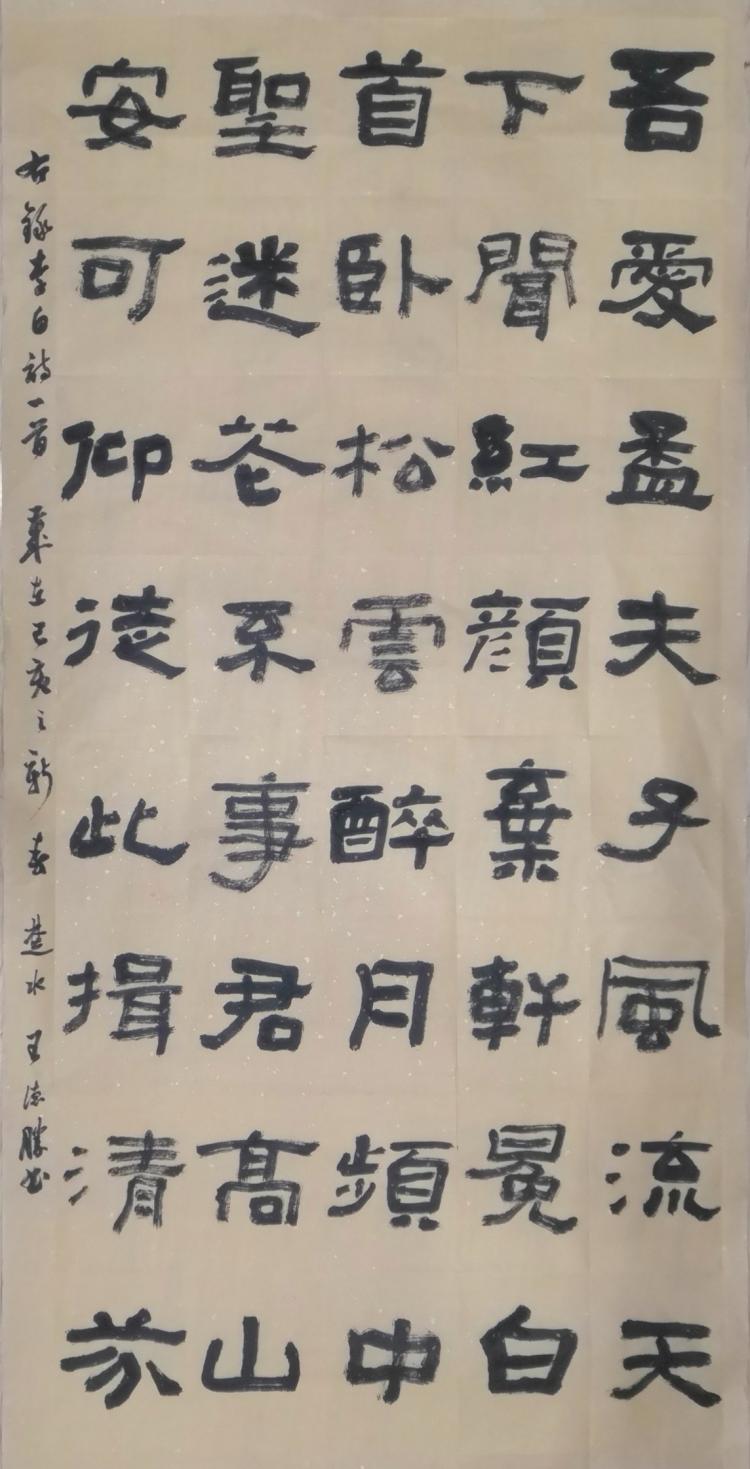 吾愛孟夫子風流天
下聞紅顏棄軒冕白
首卧松雲醉月頻中
聖迷花不事君高山
安可仰徒此揖清芬
右錄李白詩一首 歲在己亥之新春 楚水王德勝书